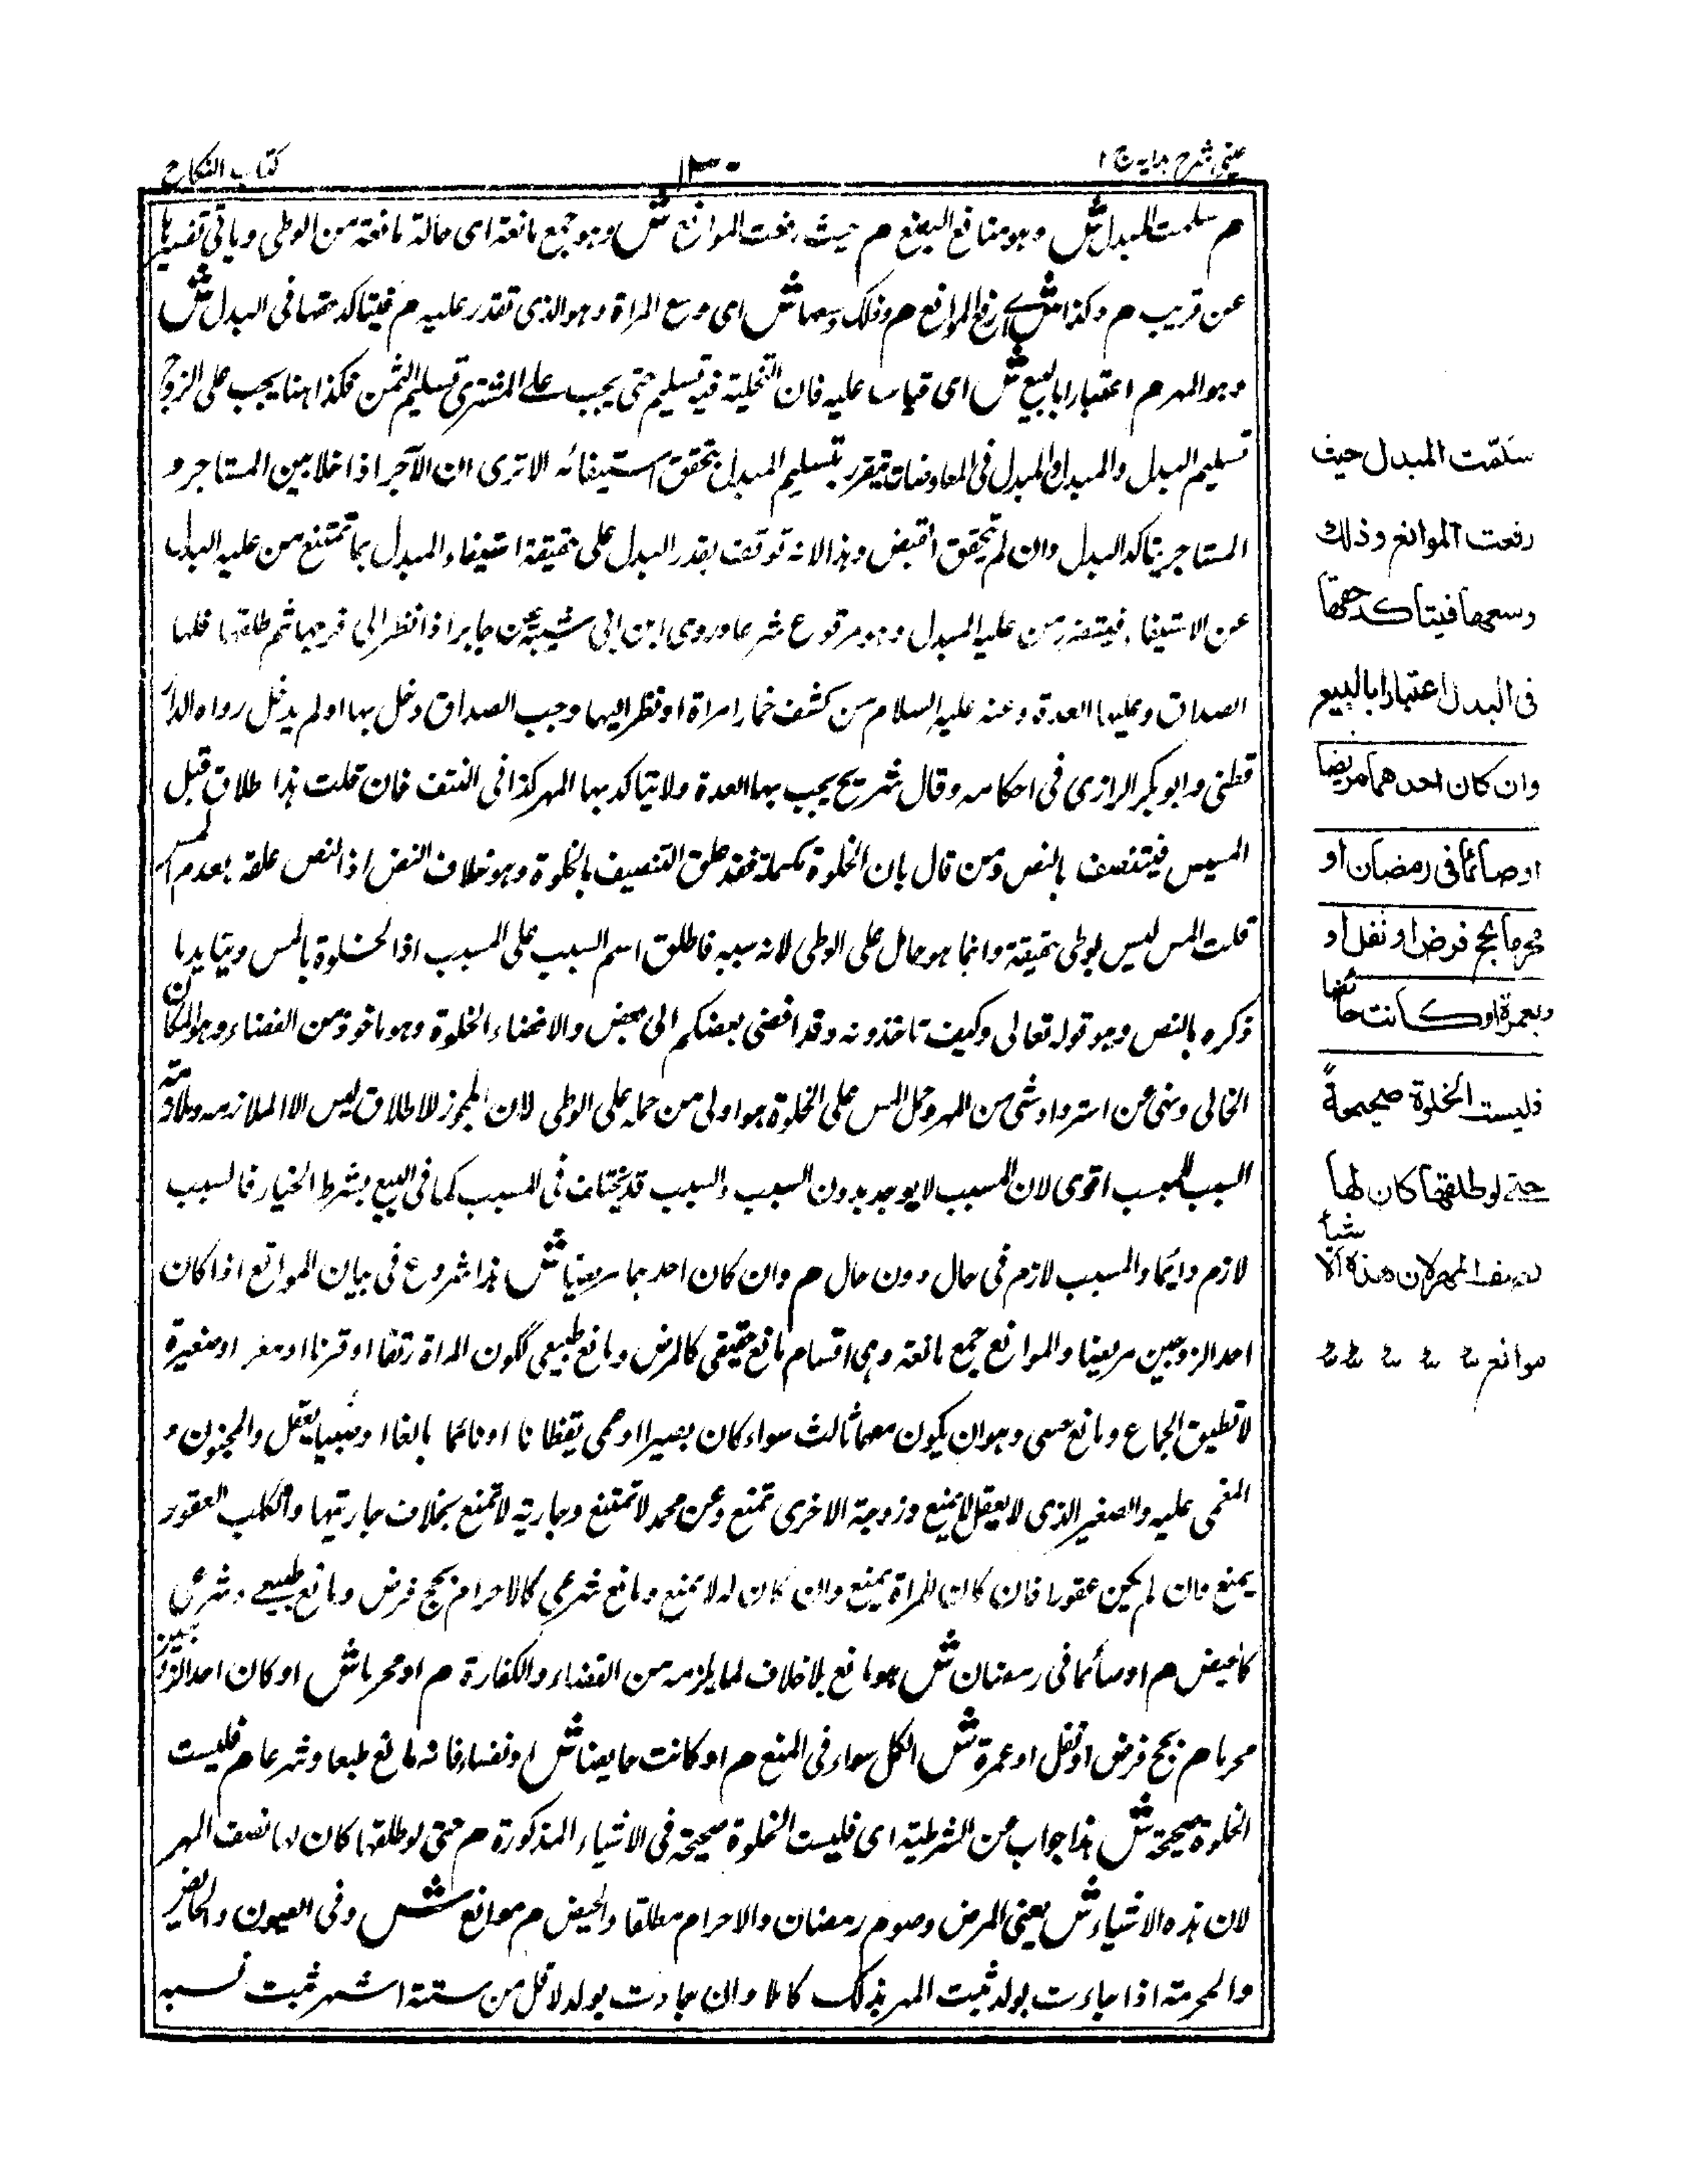 عینی شرح ہدایہ ج ۱
۱۳۰
کتاب النکاح
م سلمت المبدل ش وهو منافع البضع م حیث رفعت الموانع ش وهو جمع مانعة ای حالة مانعة من الوطی ویاتی تفسیرہا
عن قریب م وکذا ش ای رفع الموانع م وذلک وسعہا ش ای وسع المراة وهو الذی تقدر علیه م فیتاکد حقہا فی البدل ش
وهو المہر م اعتبارا بالبیع ش ای قیاسا علیه فان التخلیة فیه تسلیم حتی یجب علی المشتری تسلیم الثمن فکذا ہنا یجب علی الزوج
تسلیم البدل والمبدل فی المعاوضات یتقرر بتسلیم المبدل بتحقق استیفائه الا تری ان الآجر اذا خلا بین المستاجر و
المستاجر یتاکد البدل وان لم یتحقق القبض وہذا لانه توقف تقدر البدل علی حقیقة استیفاء المبدل بما تمتنع من علیه البدل
عن الاستیفاء فیتضرر من علیه المبدل وهو مرفوع شرعا وروی ابن ابی شیبة عن جابر اذا نظر الی فرجہا ثم طلقہا فلہا
الصداق وعلیہا العدة وعنه علیه السلام من کشف خمار امراة او نظر الیہا وجب الصداق دخل بہا او لم یدخل رواہ الدار
قطنی وابو بکر الرازی فی احکامه وقال شریح یجب بہا العدة ولا یتاکد بہا المہر کذا فی النتف فان قلت ہذا طلاق قبل
المسیس فیتنصف بالنص ومن قال بان الخلوة مکملة فقد علق التنصیف بالخلوة وهو خلاف النص اذ النص علقه بعدم المس
قلت المس لیس بوطی حقیقة وانما هو حامل علی الوطی لانه سببه فاطلق اسم السبب علی المسبب اذا الخلوة بالمس ویتاید بما
ذکرہ بالنص وهو قوله تعالی وکیف تاخذونه وقد افضی بعضکم الی بعض والافضاء الخلوة وهو ماخوذ من الفضاء وهو المکان
الخالی ونہی عن استرداد شی من المہر وحمل المس علی الخلوة هو اولی من حمله علی الوطی لان المجوز للاطلاق لیس الا الملازمة وملازمة
السبب للمسبب اقوی لان المسبب لا یوجد بدون السبب والسبب قد یتخلف فی المسبب کما فی البیع بشرط الخیار فالسبب
لازم دائما والمسبب لازم فی حال دون حال م وان کان احدہما مریضا ش ہذا شروع فی بیان الموانع اذا کان
احد الزوجین مریضا والموانع جمع مانعة وهی اقسام مانع حقیقی کالمرض ومانع طبیعی ککون المراة رتقا او قرنا او صغیرة
لا تطیق الجماع ومانع حسی وهو ان یکون معہما ثالث سواء کان بصیرا او اعمی یقظانا او نائما بالغا او صبیا یعقل والمجنون و
المغمی علیه والصغیر الذی لا یعقل لا یمنع وزوجة الاخری تمنع وعن محمد لا تمتنع وجاریة لا تمنع بخلاف جاریتہا والکلب العقور
یمنع فان لم یکن عقورا فان کان للمراة یمنع وان کان له لا یمنع ومانع شرعی کالاحرام بحج فرض ومانع طبیعی وشرعی
کالحیض م او صائما فی رمضان ش هو مانع بلا خلاف لما یلزمه من القضاء والکفارة م او محرما ش او کان احد الزوجین
محرما م بحج فرض او نفل او عمرة ش الکل سواء فی المنع م او کانت حایضا ش او نفساء فانه مانع طبعا وشرعا م فلیست
الخلوة صحیحة ش ہذا جواب عن الشرطیة ای فلیست الخلوة صحیحة فی الاشیاء المذکورة م حتی لو طلقہا کان لہا نصف المہر
لان ہذہ الاشیاء ش یعنی المرض وصوم رمضان والاحرام مطلقا والحیض م موانع ش وفی العیون والحایض
والمحرمة اذا جاءت بولد ثبت المہر بذلک کاملا وان جاءت بولد لاقل من ستة اشہر ثبت نسبه
سلّمت المبدل حیث
رفعت الموانع وذلك
وسعها فیتاکد حقها
فی البدل اعتبارا بالبیع
وان کان احدهما مریضا
او صائما فی رمضان او
محرما بحج فرض او نفل او
بعمرة او کانت حائضا
فلیست الخلوة صحیحةً
حتی لو طلقها کان لها
نصف المهر لان هذه الاشیاء
موانع